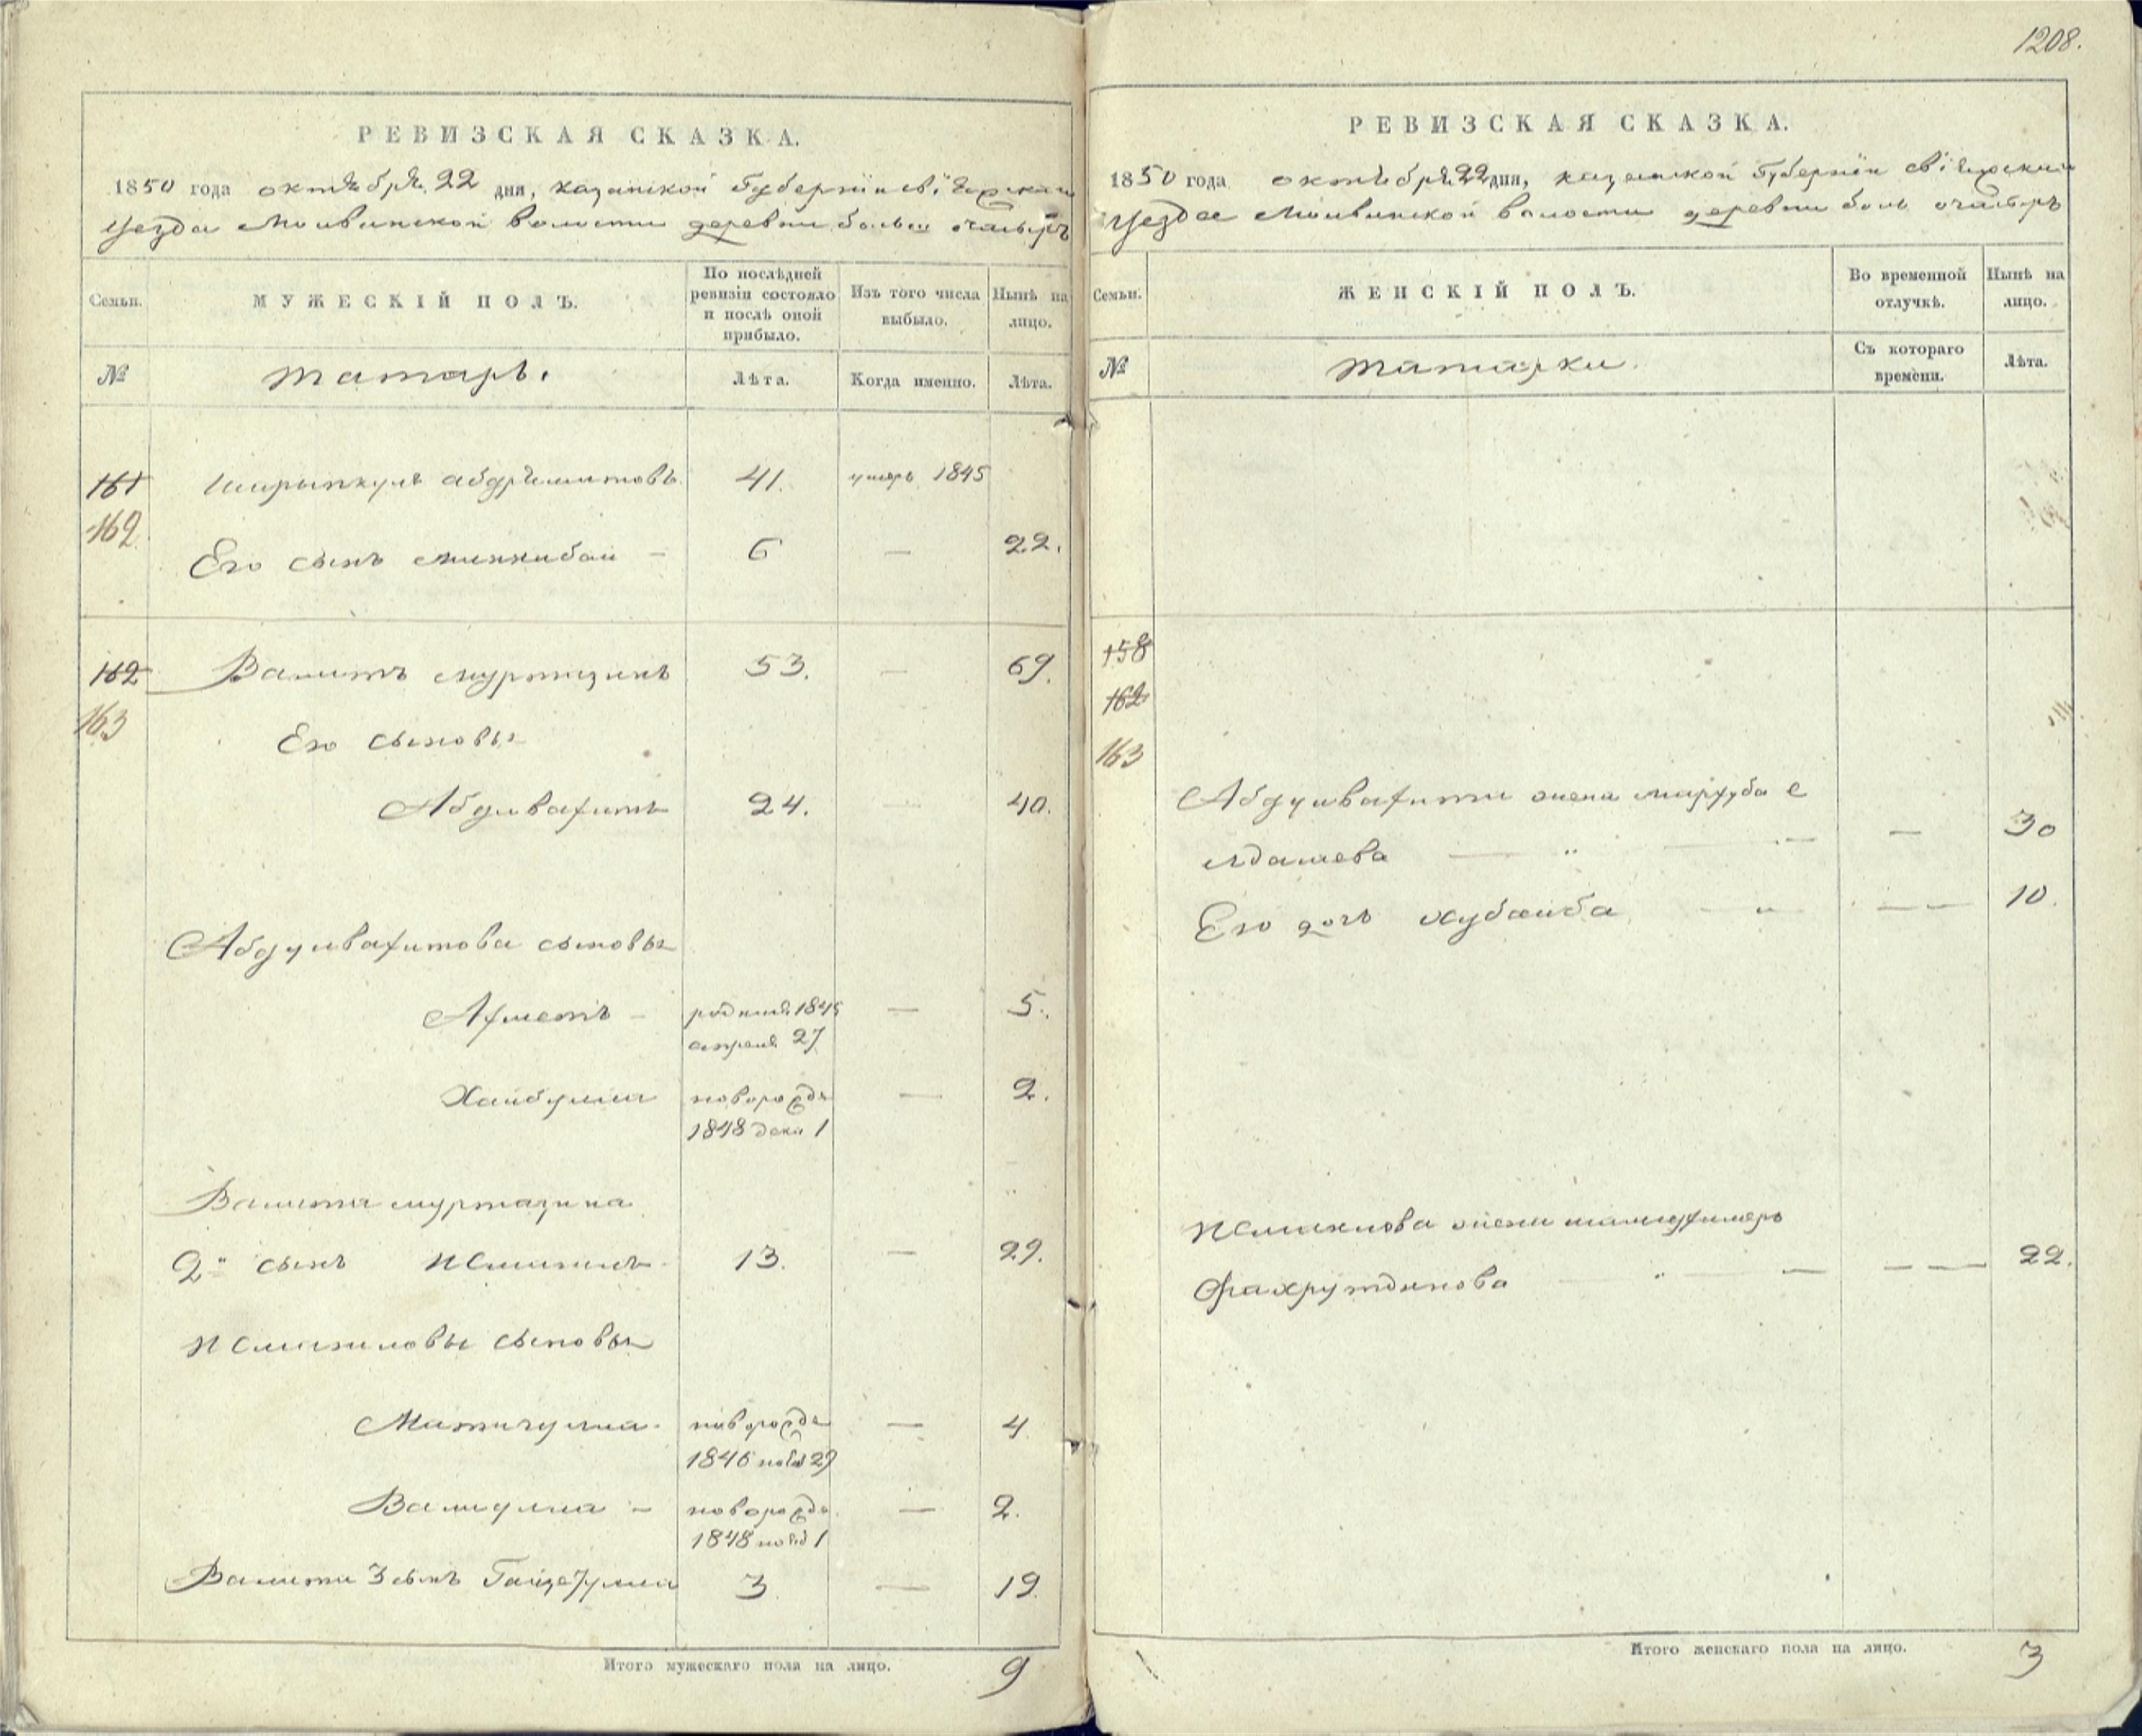 1208.
РЕВИЗСКАЯ СКАЗКА.
1850 года октября 22 дня, казанской Губернии свіяжскаго
уезда Молвинской волости деревни больш очасыръ
Семьи.
МУЖЕСКІЙ ПОЛЪ.
По послѣдней ревизіи состояло и послѣ оной прибыло.
Изъ того числа выбыло.
Нынѣ на лицо.
№
татаръ.
Лѣта.
Когда именно.
Лѣта.
161 41. умеръ 1845
162
Его сынъ минкибай — 6 — 22.
162 Валитъ муртазинъ 53. — 69.
163
Его сыновья
Абдулвагитъ 24. — 40.
Абдулвагитова сыновья
Ахметъ — родился 1845 — 5.
апреля 27
Хайбулла новорожде — 2.
1848 дека 1
Валита муртазина
2й сынъ Исмаилъ 13. — 29.
Исмаиловы сыновья
новорожде — 4
1846 нояб 29
Валиулла — новорожде — 2.
1848 нояб 1
Валита 3 сынъ 3 — 19.
Итого мужескаго пола на лицо. 9
РЕВИЗСКАЯ СКАЗКА.
1850 года октября 22 дня, казанской Губерніи свіяжскаго
уезда Молвинской волости деревни боль очасыръ
Семьи.
ЖЕНСКІЙ ПОЛЪ.
Во временной отлучкѣ.
Нынѣ на лицо.
№
татарки.
Съ котораго времени.
Лѣта.
158
162
163
Абдулвагита жена е
— „ — — 30
Его дочь хубаиба — „ — — — 10.
Исмаилова жена
Фахрутдинова — „ — — — — 22.
Итого женскаго пола на лицо. 3